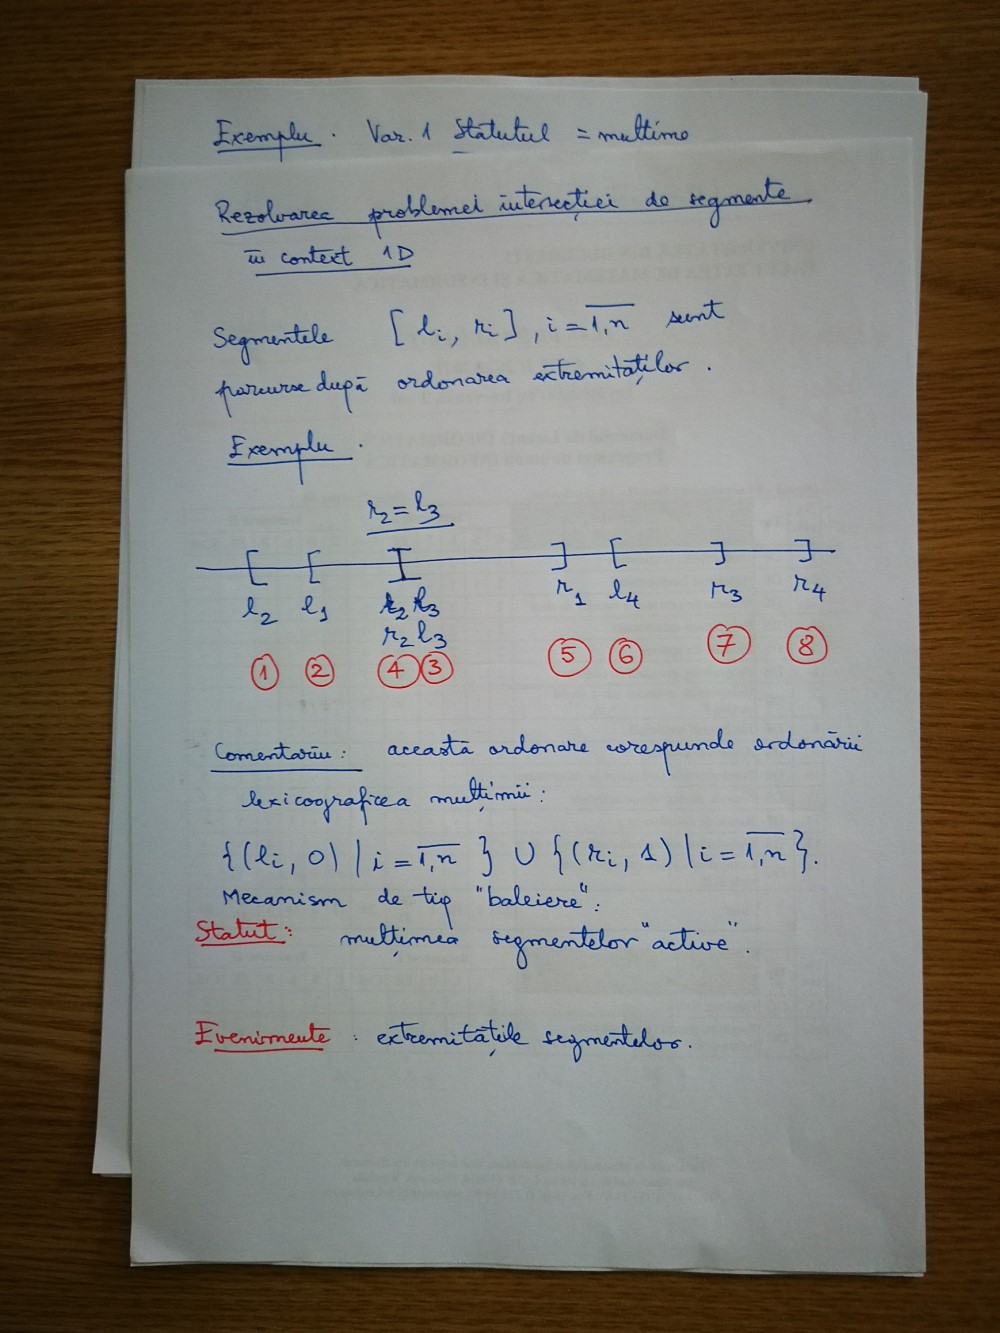 Exemplu. Var. 1 Statutul = multime
Rezolvarea problemei intersecției de segmente
în context 1D
Segmentele [li, ri], i = 1,n sunt
parcurse după ordonarea extremităților.
Exemplu.
r2 = l3
l2 l1 r2 l3 r1 l4 r3 r4
r2 l3
1 2 4 3 5 6 7 8
Comentariu: această ordonare corespunde ordonării
lexicografice a mulțimii:
{(li, 0) | i = 1,n } ∪ {(ri, 1) | i = 1,n }.
Mecanism de tip "baleiere":
Statut: mulțimea segmentelor "active".
Evenimente: extremitățile segmentelor.